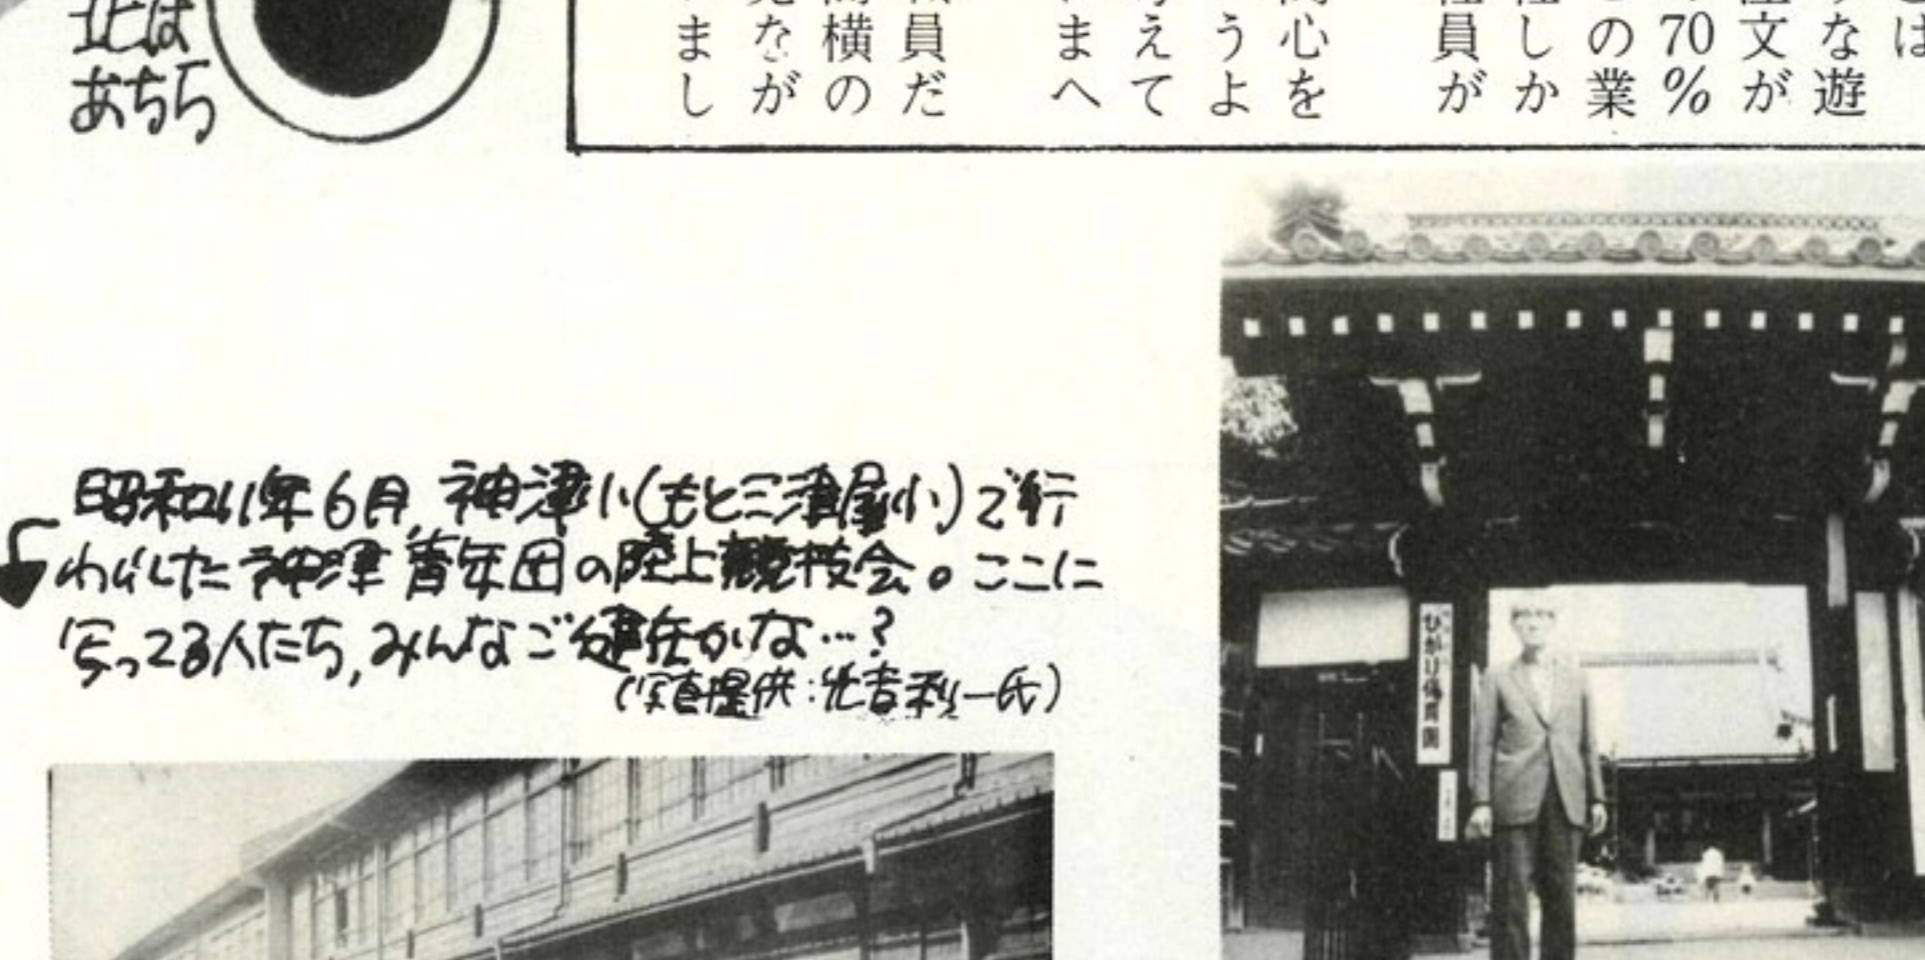 北は
あちら
とは
な遊
文が
70%
の業
しか
員が
心を
うよ
えて
まへ
員だ
横の
なが
まし
昭和11年6月、神津小(もと三津屋小)で行
われた神津青年団の陸上競技会。ここに
写ってる人たち,みんなご健在かな…?
(写真提供:光吉利一氏)
ひかり保育園